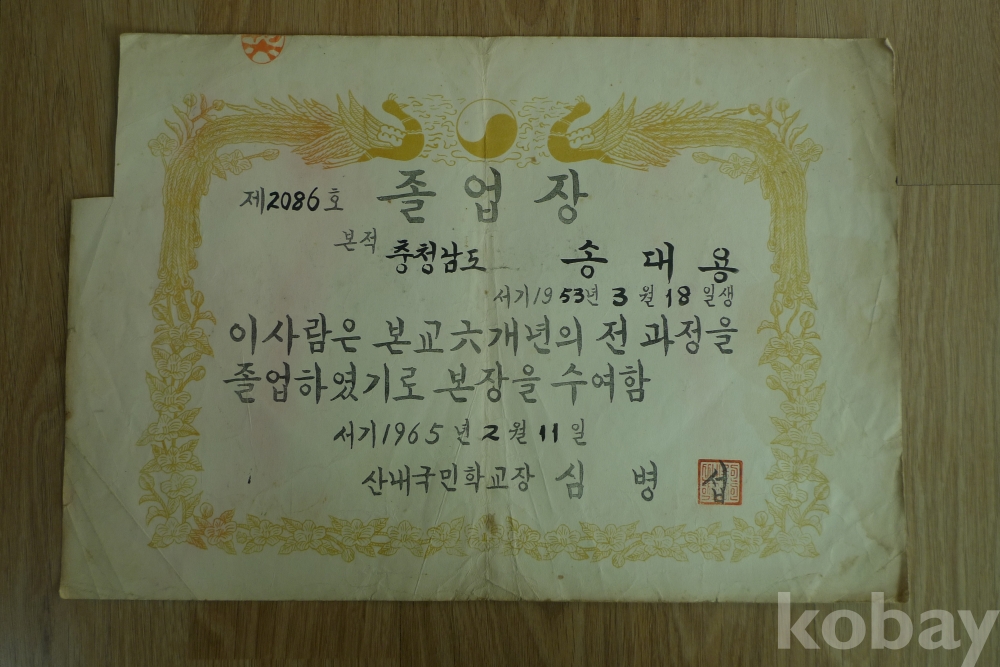 제2086호 졸업장
본적 충청남도 송대용
서기1953년 3월 18일생
이사람은 본교六개년의 전 과정을
졸업하였기로 본장을 수여함
서기1965년 2월 11일
산내국민학교장 심병섭
kobay